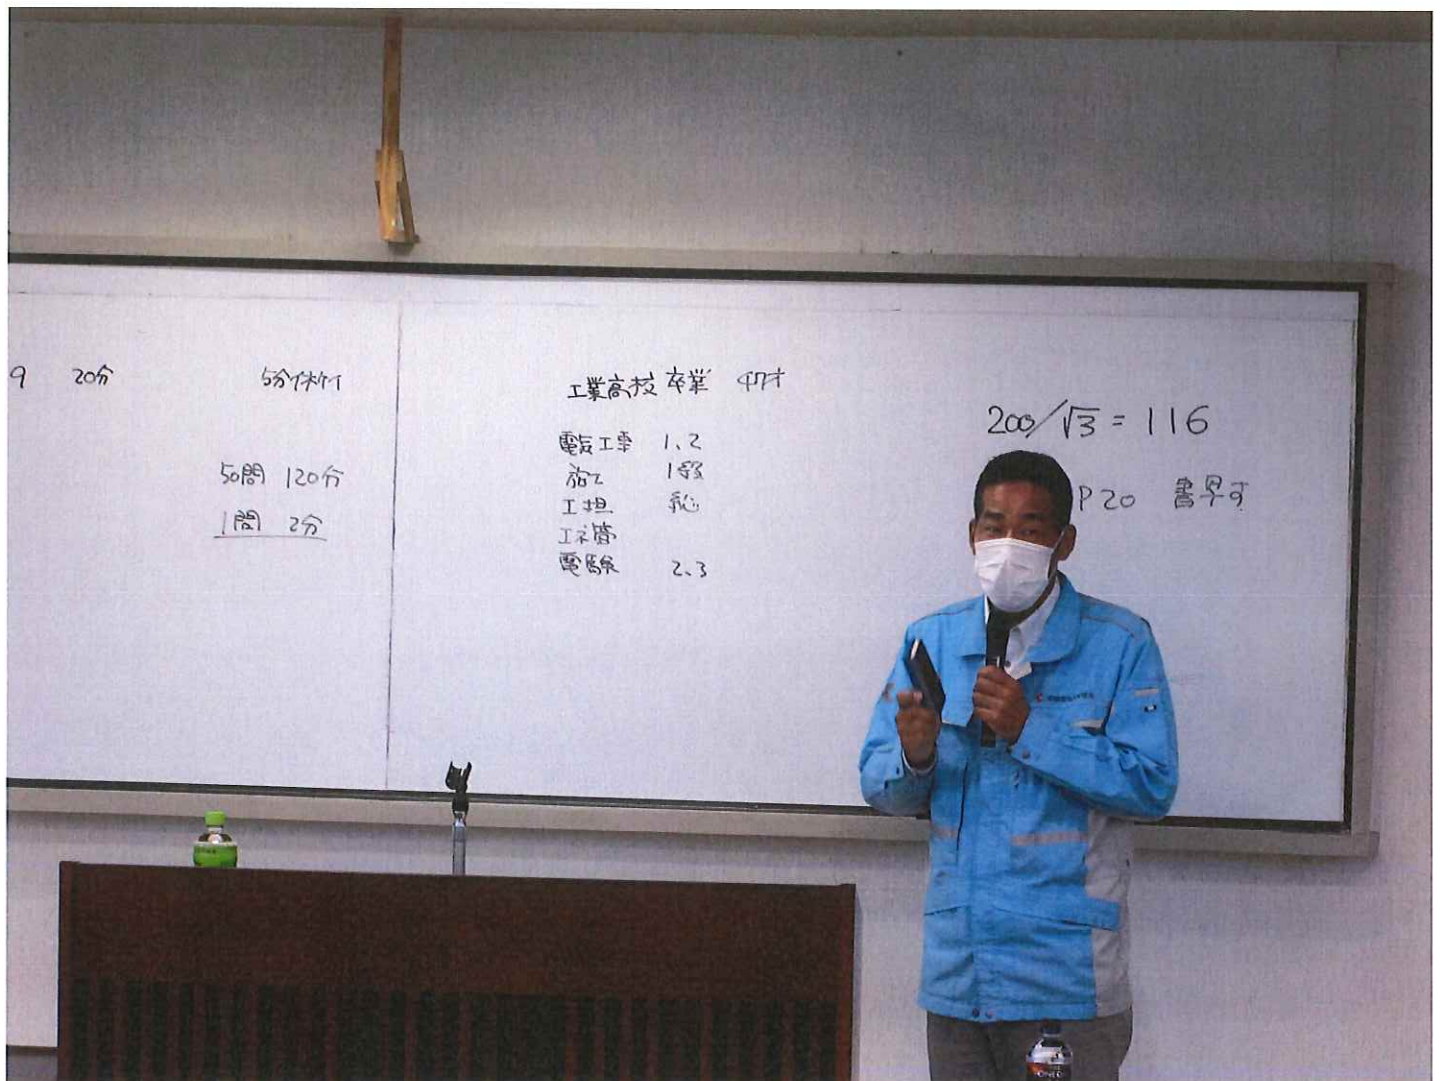 9 20分 5分休ケイ
50問 120分
1問 2分
工業高校 卒業 47才
電気工事 1、2
施工 1級
工担
エネ管
電験 2、3
200/√3 = 116
P20